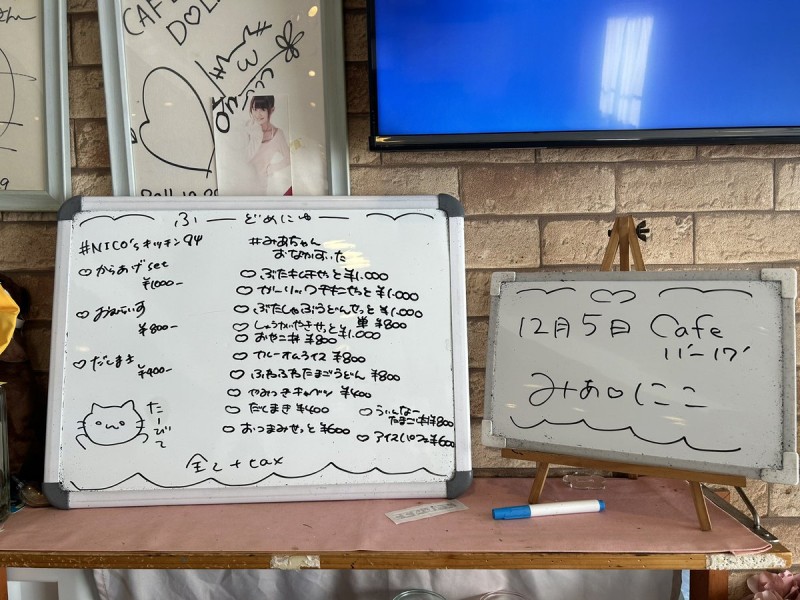 CAFE
DOLL
ふーどめにゅー
#NICO'sキッチン94
♡からあげset
¥1000-
♡おむらいす
¥800-
♡だしまき
¥400-
たーびて
#みあちゃん
おなかすいた
♡ぶたキムチせっと¥1.000
♡ガーリックチキンせっと¥1.000
♡ぶたしゃぶうどんせっと¥1.000
♡しょうがやきせっと¥1.000 単¥800
♡おやこ丼 ¥800
♡カレーオムライス ¥800
♡ふわふわたまごうどん ¥800
♡やみつきキャベツ ¥400
♡だしまき ¥400
♡おつまみせっと ¥600
♡うぃんなー
たまご丼¥800
♡アイスパフェ¥600
全て+tax
12月5日 Cafe
11'-17'
みあ♡にこ